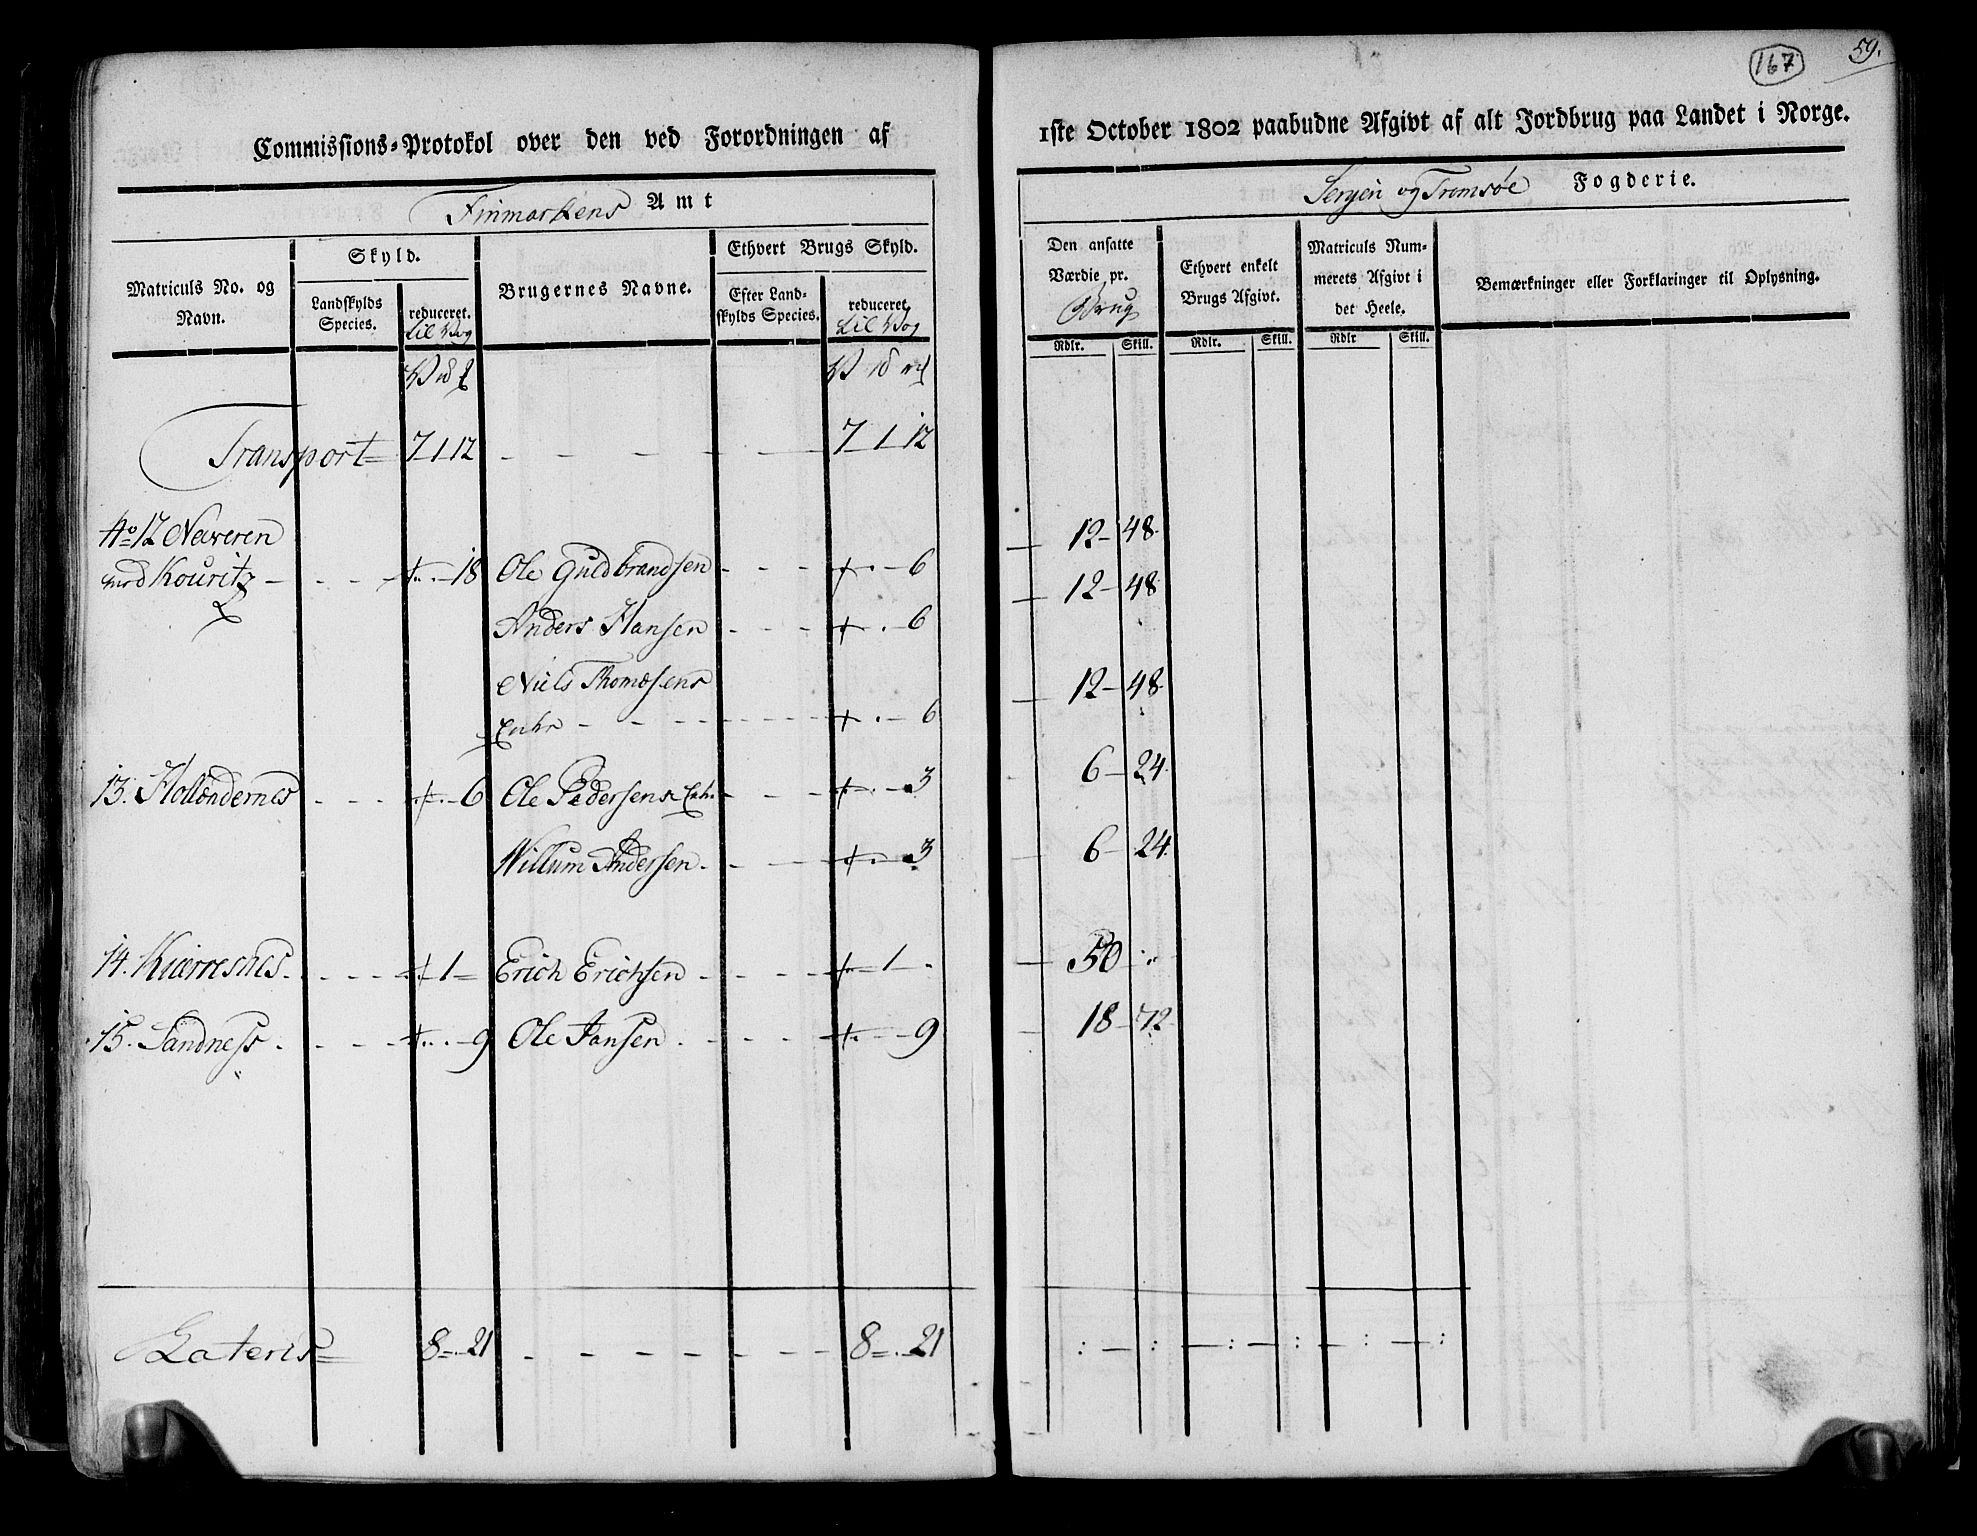 167
59.
Commissions-Protokol over den ved Forordningen af
1ste October 1802 paabudne Afgivt af alt Jordbrug paa Landet i Norge.
Finmarkens Amt
Senjen og Tromsøe Fogderie.
Matriculs No. og Navn.
Skyld.
Landskylds Species.
reduceret.
til Vog
Brugernes Navne.
Ethvert Brugs Skyld.
Efter Landskylds Species.
reduceret.
til Vog
Den ansatte Værdie pr.
Brug
Ethvert enkelt Brugs Afgivt.
Matriculs Nummerets Afgivt i det Heele.
Bemærkninger eller Forklaringer til Oplysning.
Rdlr. Skill. Rdlr. Skill. Rdlr Skill.
Transport 7 1 12 - - - - 7 1 12
No 12 Neveren 12 - 48
med Kouritz - - - 18 Ole Guldbrandsen - - - 6 12 - 48
Anders Hansen - - - 6
Niels Thomæsens 12 - 48
Enke - - - - 6
13. Hollændernes - - - 6 Ole Pedersens Enke - - - 3 6 - 24
Willum Andersen - - - 3 6 - 24
14. Kierresnes - - - 1 - Erich Erichsen - - - 1 - 50
15. Sandness - - - 9 Ole Jansen - - - 9 18 - 72
Lateris 8 - 21 - - - - - - 8 - 21